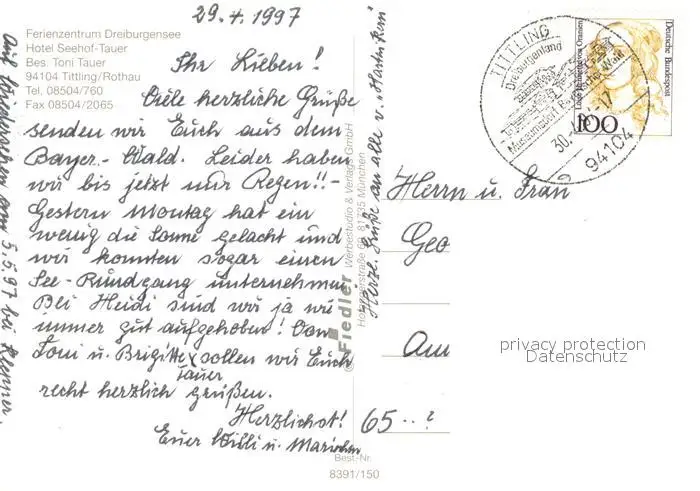 29.4.1997
Ferienzentrum Dreiburgensee
Hotel Seehof-Tauer
Bes. Toni Tauer
94104 Tittling/Rothau
Tel. 08504/760
Fax 08504/2065
Ihr Lieben!
Viele herzliche Grüße
senden wir Euch aus dem
Bayer.-Wald. Leider haben
wir bis jetzt nur Regen!!-
Gestern Montag hat ein
wenig die Sonne gelacht und
wir konnten sogar einen
See-Rundgang unternehmen.
Bei Heidi sind wir ja wie
immer gut aufgehoben! Von
Toni u. Brigitte Tauer sollen wir Euch
recht herzlich grüßen.
Herzlichst!
Euer Willi u. Mariechen
Auf Wiedersehen am 5.5.97 bei Klepper.
Herzl. Grüße an alle v.
Fiedler Werbestudio & Verlag GmbH
81735 München
Best.-Nr.
8391/150
TITTLING
Dreiburgenland
Museumsdorf
30.
-17
94104
Deutsche Bundespost
Luise Henriette von Oranien
100
Herrn u. Frau
Geo
Am
65..?
privacy protection
Datenschutz